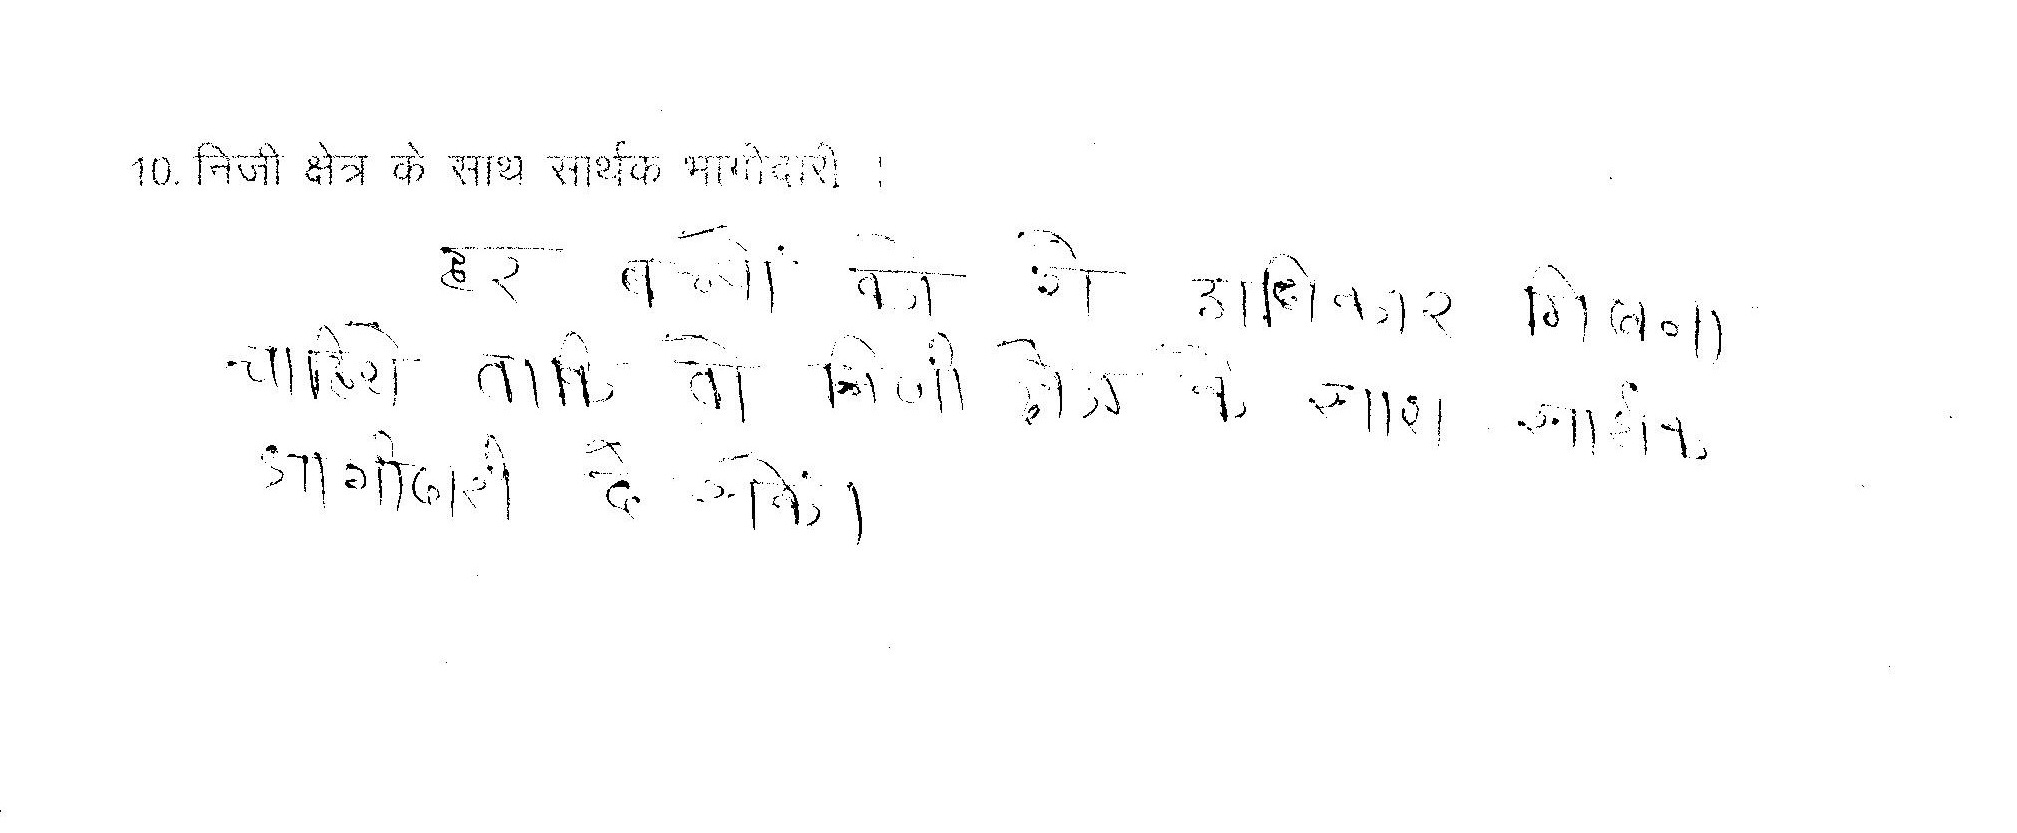 10. निजी क्षेत्र के साथ सार्थक भागीदारी :
हर बच्चों को ये अधिकार मिलना
चाहिये ताकि वो निजी क्षेत्र के साथ सार्थक
भागीदारी दे सकें।